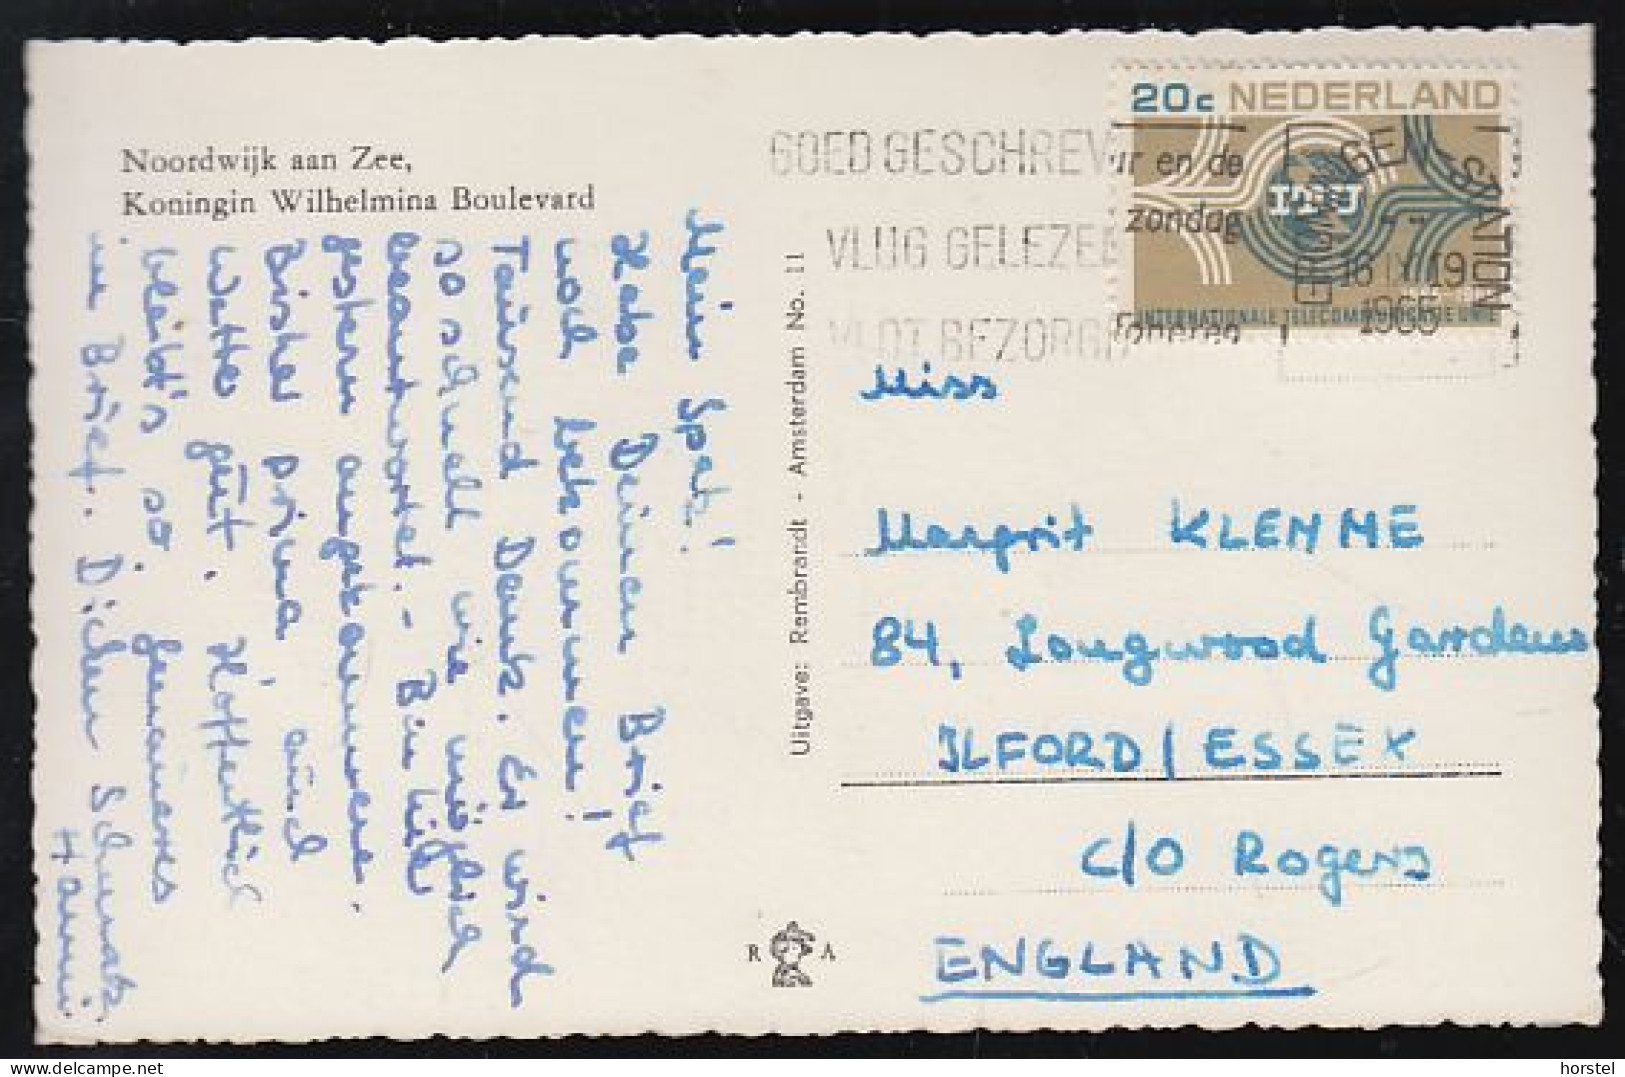 Noordwijk aan Zee,
Koningin Wilhelmina Boulevard
Mein Spatz!
Habe Deinen Brief
noch bekommen!
Tausend Dank. Er wird
so schnell wie möglich
beantwortet. - Bin hier
gestern angekommen.
Bisher prima, auch
Wetter gut. Hoffentlich
bleibt's so. Genaueres
im Brief. Dicken Schmatz
Hanni
Uitgave: Rembrandt - Amsterdam No. 11
R A
20c NEDERLAND
ITU
INTERNATIONALE TELECOMMUNICATIE UNIE
GOED GESCHREV
VLUG GELEZE
VLOT BEZORG
ur en de
zondag
STATION
16 IX 19
1965
Miss
Margrit KLEMME
84, Longwood Gardens
ILFORD / ESSEX
c/o Rogers
ENGLAND
horstel